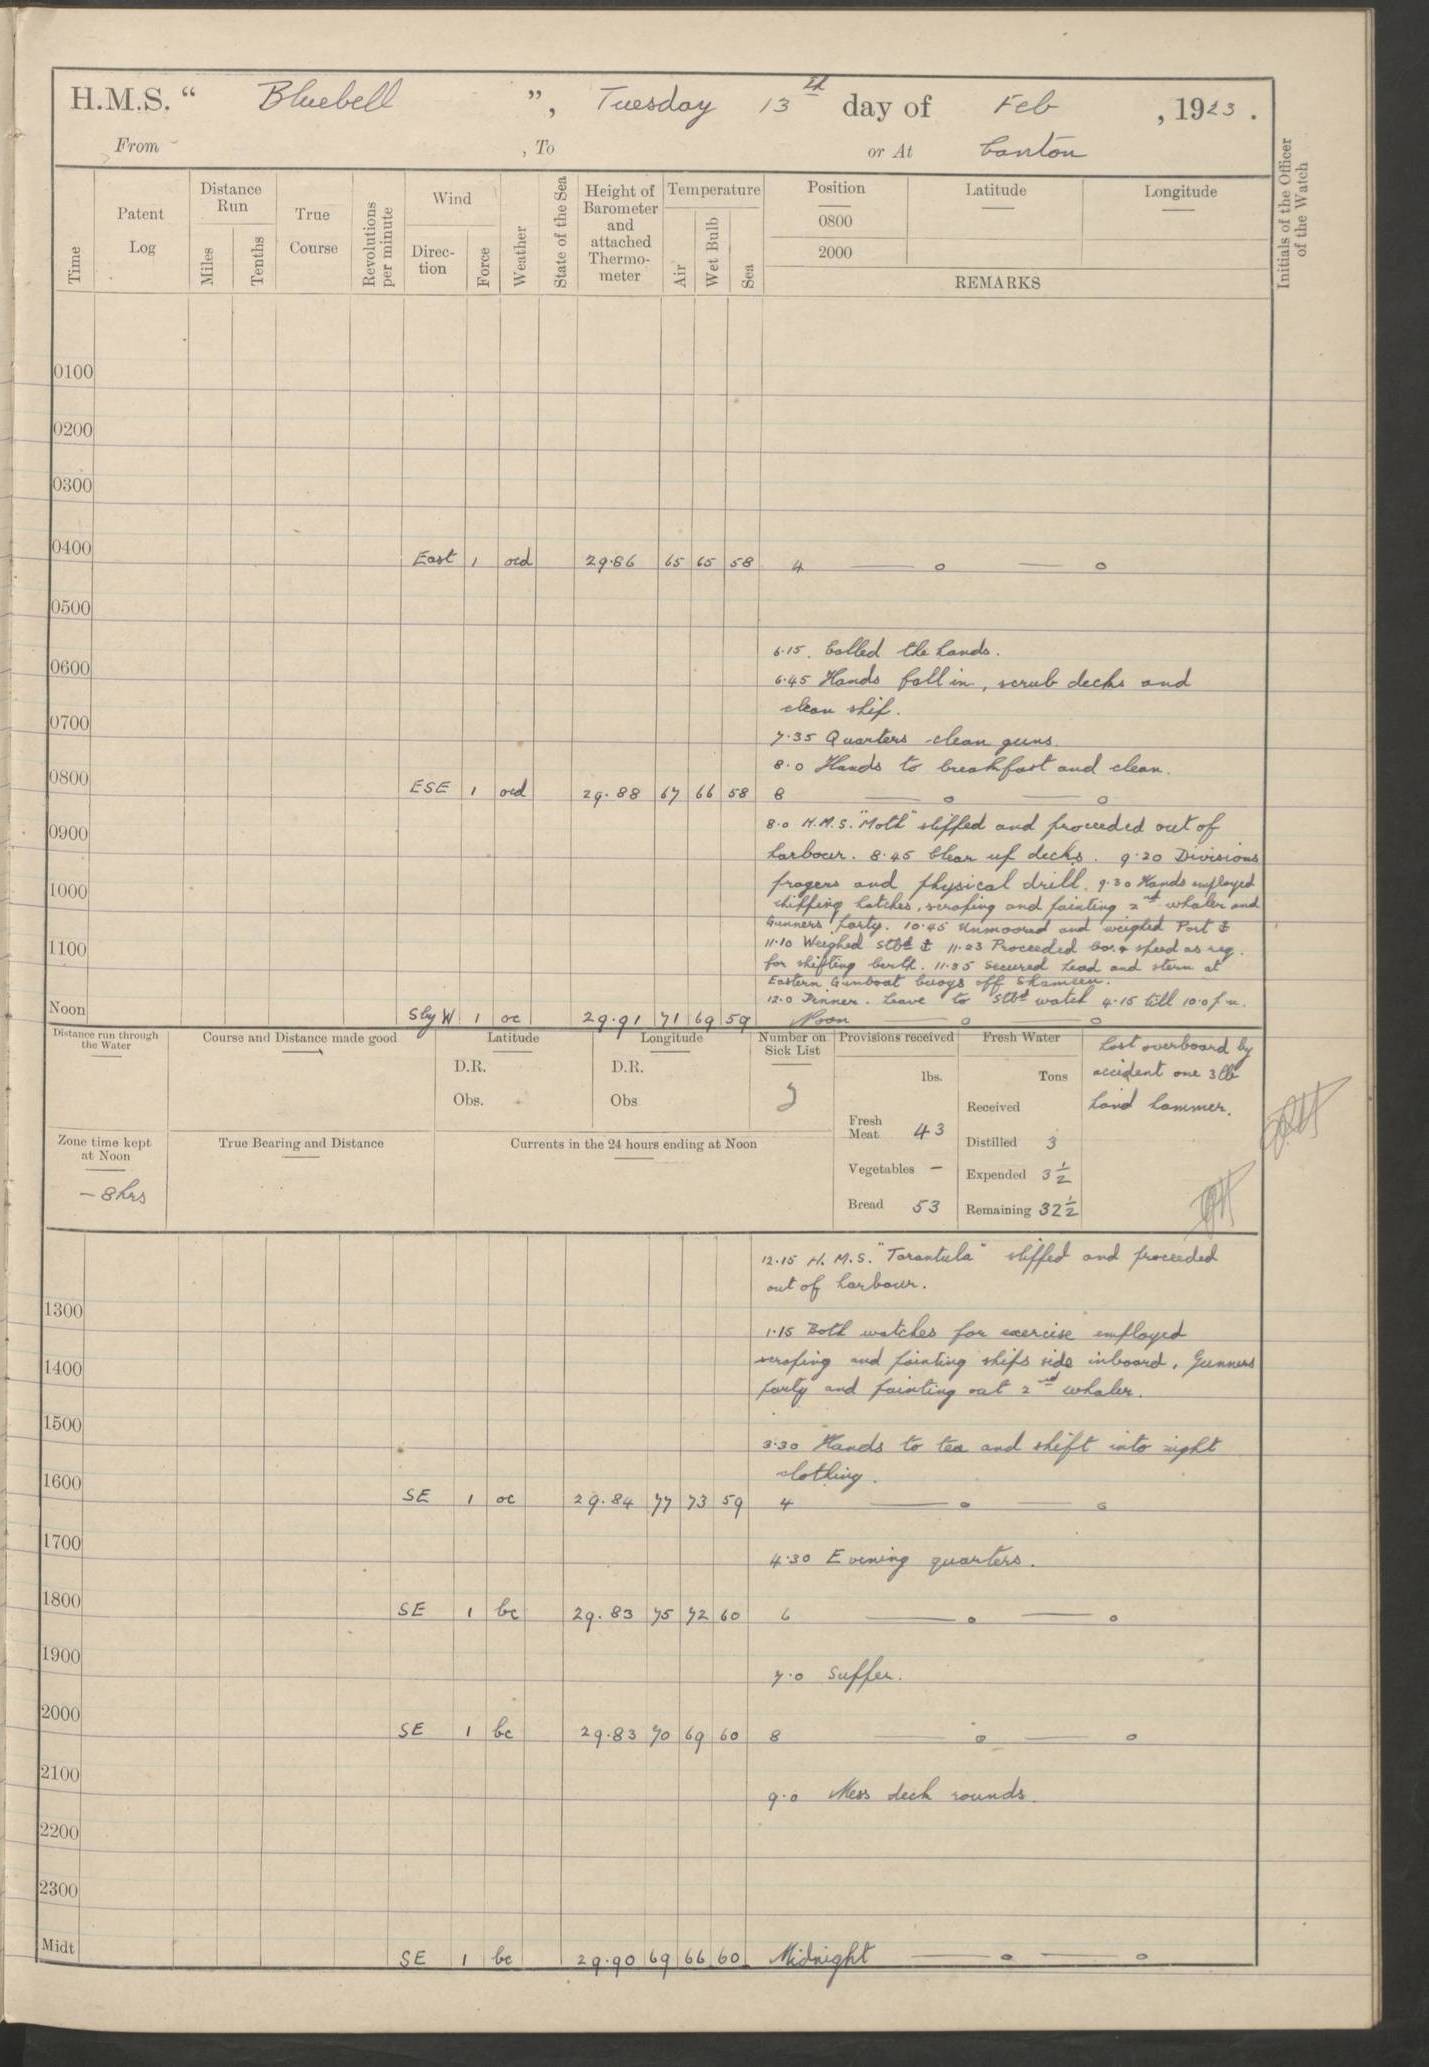 H.M.S. “ Bluebell ”, Tuesday 13th day of Feb , 1923 .
From , To or At Canton
Time
Patent Log
Distance Run
Miles
Tenths
True Course
Revolutions per minute
Wind
Direc- tion
Force
Weather
State of the Sea
Height of Barometer and attached Thermo- meter
Temperature
Air
Wet Bulb
Sea
Position Latitude Longitude
0800
2000
REMARKS
Initials of the Officer of the Watch
0100
0200
0300
0400 East 1 ocd 29.86 65 65 58 4 —— o —— o
0500
6.15. Called the hands.
0600
6.45 Hands fall in, scrub decks and
clean ship.
0700
7.35 Quarters clean guns.
8.0 Hands to breakfast and clean.
0800 ESE 1 ocd 29.88 67 66 58 8 —— o —— o
8.0 H.M.S. "Moth" slipped and proceeded out of
0900
harbour. 8.45 Clear up decks. 9.20 Divisions
1000
prayers and physical drill. 9.30 Hands employed
chipping hatches, scraping and painting 2nd whaler and
Gunners party. 10.45 Unmoored and weighed Port ⚓
1100
11.10 Weighed Stbd ⚓ 11.23 Proceeded Co. & speed as req.
for shifting berth. 11.35 Secured head and stern at
Eastern Gunboat buoys off Shameen.
12.0 Dinner. Leave to Stbd watch 4.15 till 10.0 p.m.
Noon S by W 1 oc 29.91 71 69 59 Noon —— o —— o
Distance run through the Water
Course and Distance made good
Latitude
D.R.
Obs.
Longitude
D.R.
Obs
Number on Sick List
Provisions received
lbs.
Fresh Meat 43
Vegetables –
Bread 53
Fresh Water
Tons
Received
Distilled 3
Expended 3 1/2
Remaining 32 1/2
Lost overboard by
accident one 3lb
hand hammer.
Zone time kept at Noon
– 8 hrs
True Bearing and Distance
Currents in the 24 hours ending at Noon
12.15 H.M.S. "Tarantula" slipped and proceeded
out of harbour.
1300
1.15 Both watches for exercise employed
scraping and painting ships side inboard, Gunners
1400
party and painting out 2nd whaler.
1500
3.30 Hands to tea and shift into night
clothing.
1600 SE 1 oc 29.84 77 73 59 4 —— o —— o
1700
4.30 Evening quarters.
1800 SE 1 bc 29.83 75 72 60 6 —— o —— o
1900
7.0 Supper.
2000 SE 1 bc 29.83 70 69 60 8 —— o —— o
2100
9.0 Mess deck rounds.
2200
2300
Midt SE 1 bc 29.90 69 66 60 Midnight —— o —— o